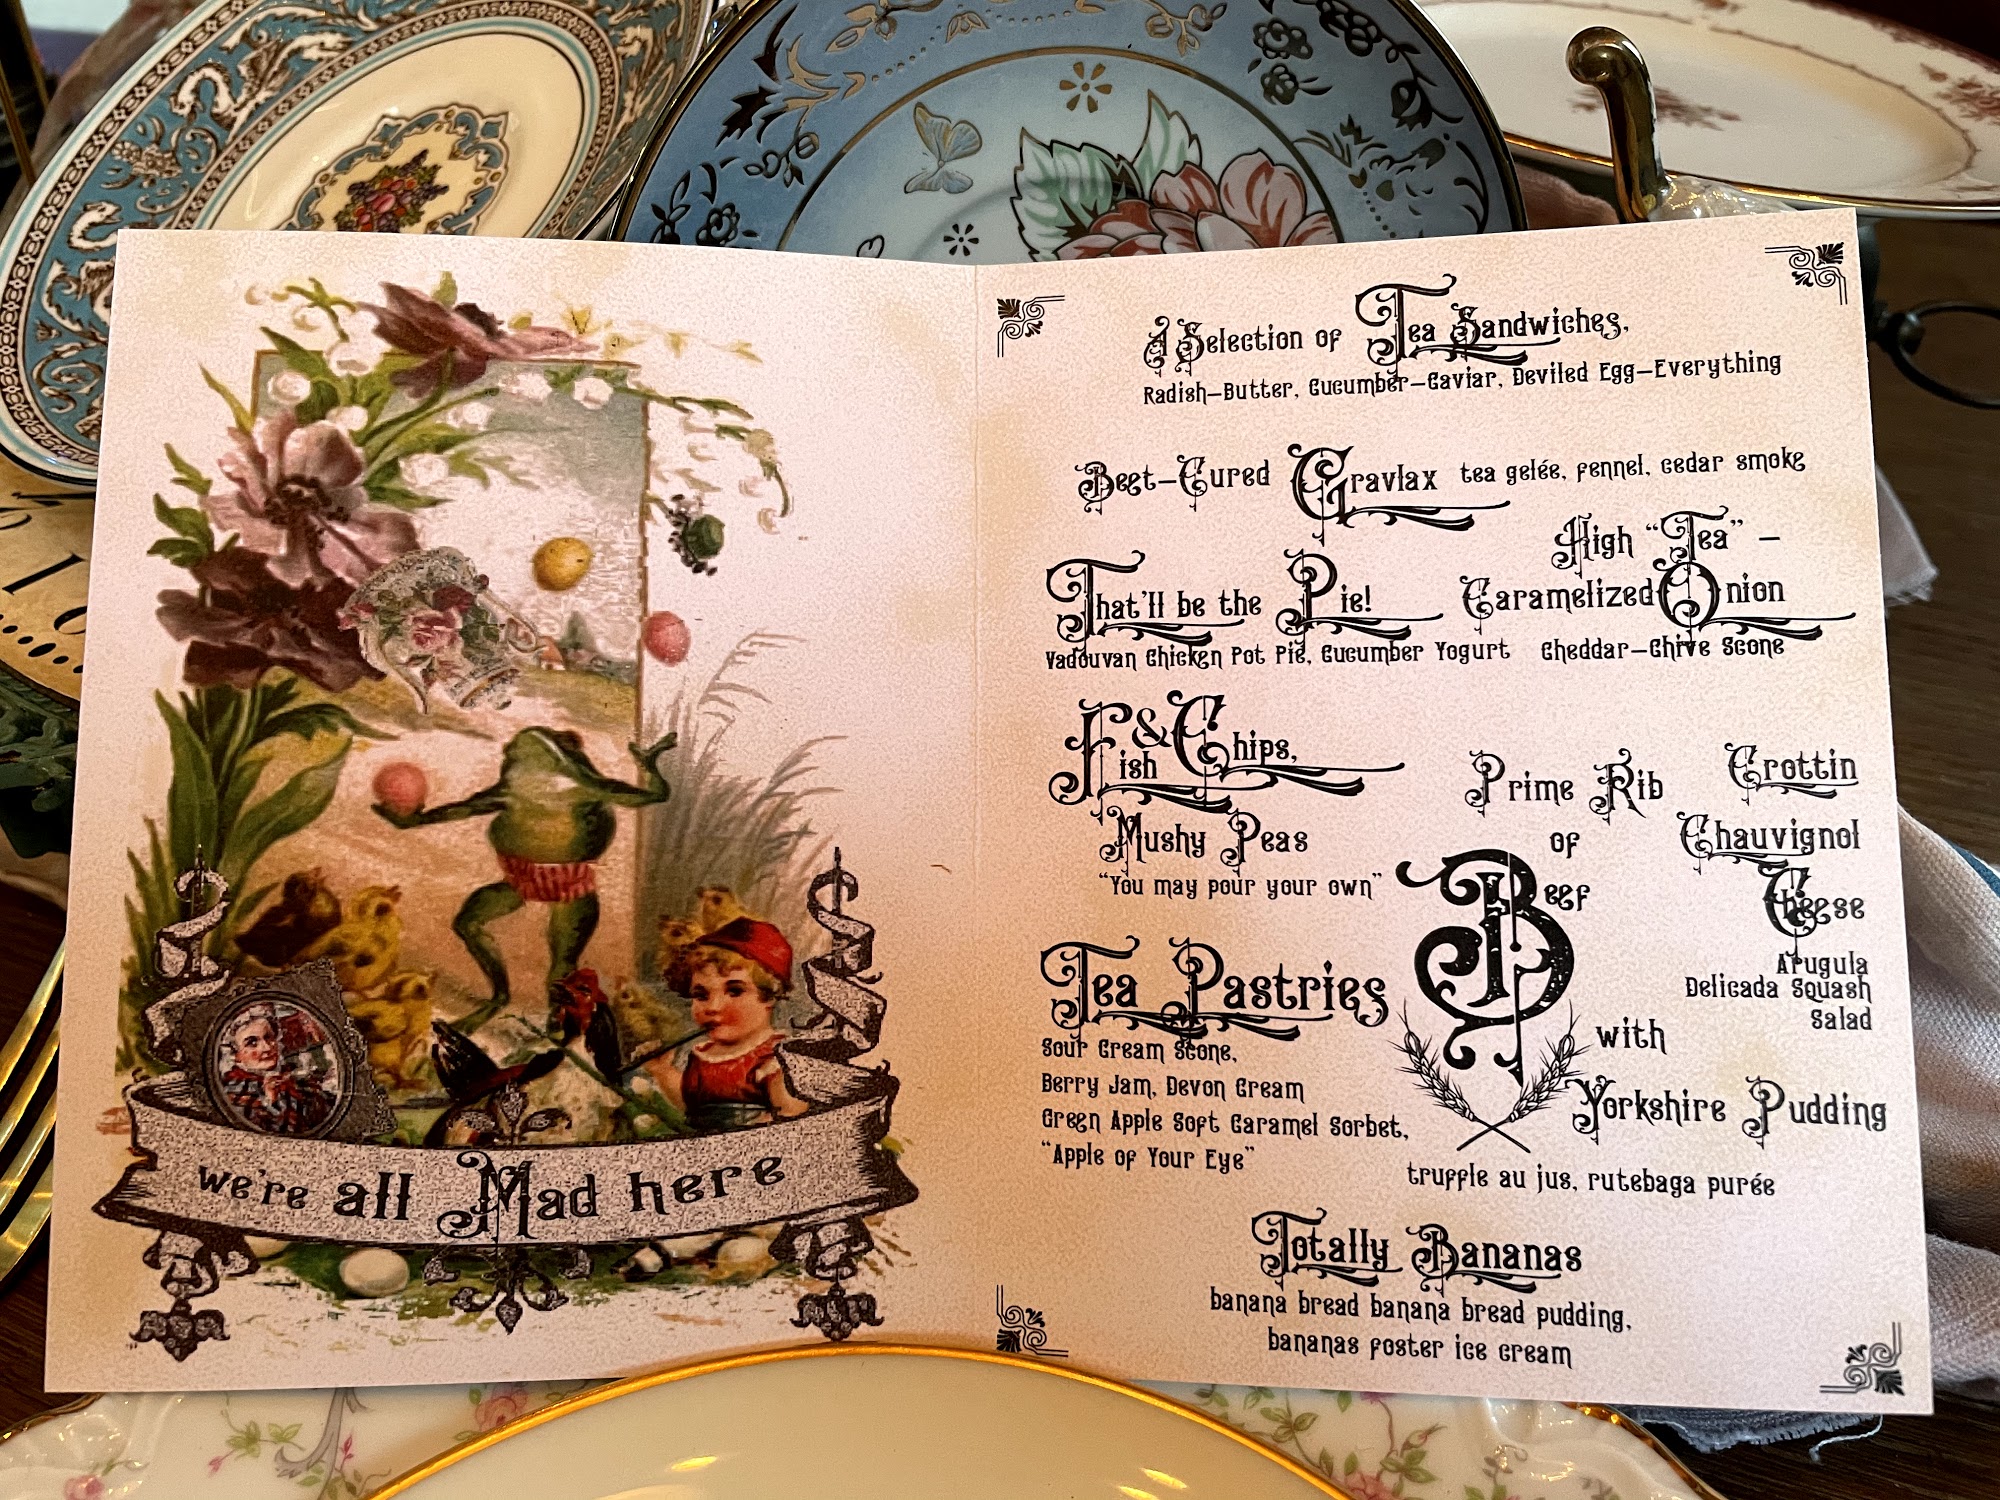 we're all Mad here
A Selection of Tea Sandwiches,
Radish-Butter, Cucumber-Caviar, Deviled Egg-Everything
Beet-Cured Gravlax tea gelée, fennel, cedar smoke
That'll be the Pie!
Vadouvan Chicken Pot Pie, Cucumber Yogurt
High "Tea" -
Caramelized Onion
Cheddar-Chive Scone
Fish & Chips,
Mushy Peas
"You may pour your own"
Prime Rib
of
Beef
B
with
Yorkshire Pudding
truffle au jus, rutebaga purée
Crottin
Chauvignol
Cheese
Arugula
Delicada Squash
Salad
Tea Pastries
Sour Cream Scone,
Berry Jam, Devon Cream
Green Apple Soft Caramel Sorbet,
"Apple of Your Eye"
Totally Bananas
banana bread banana bread pudding,
bananas foster ice cream